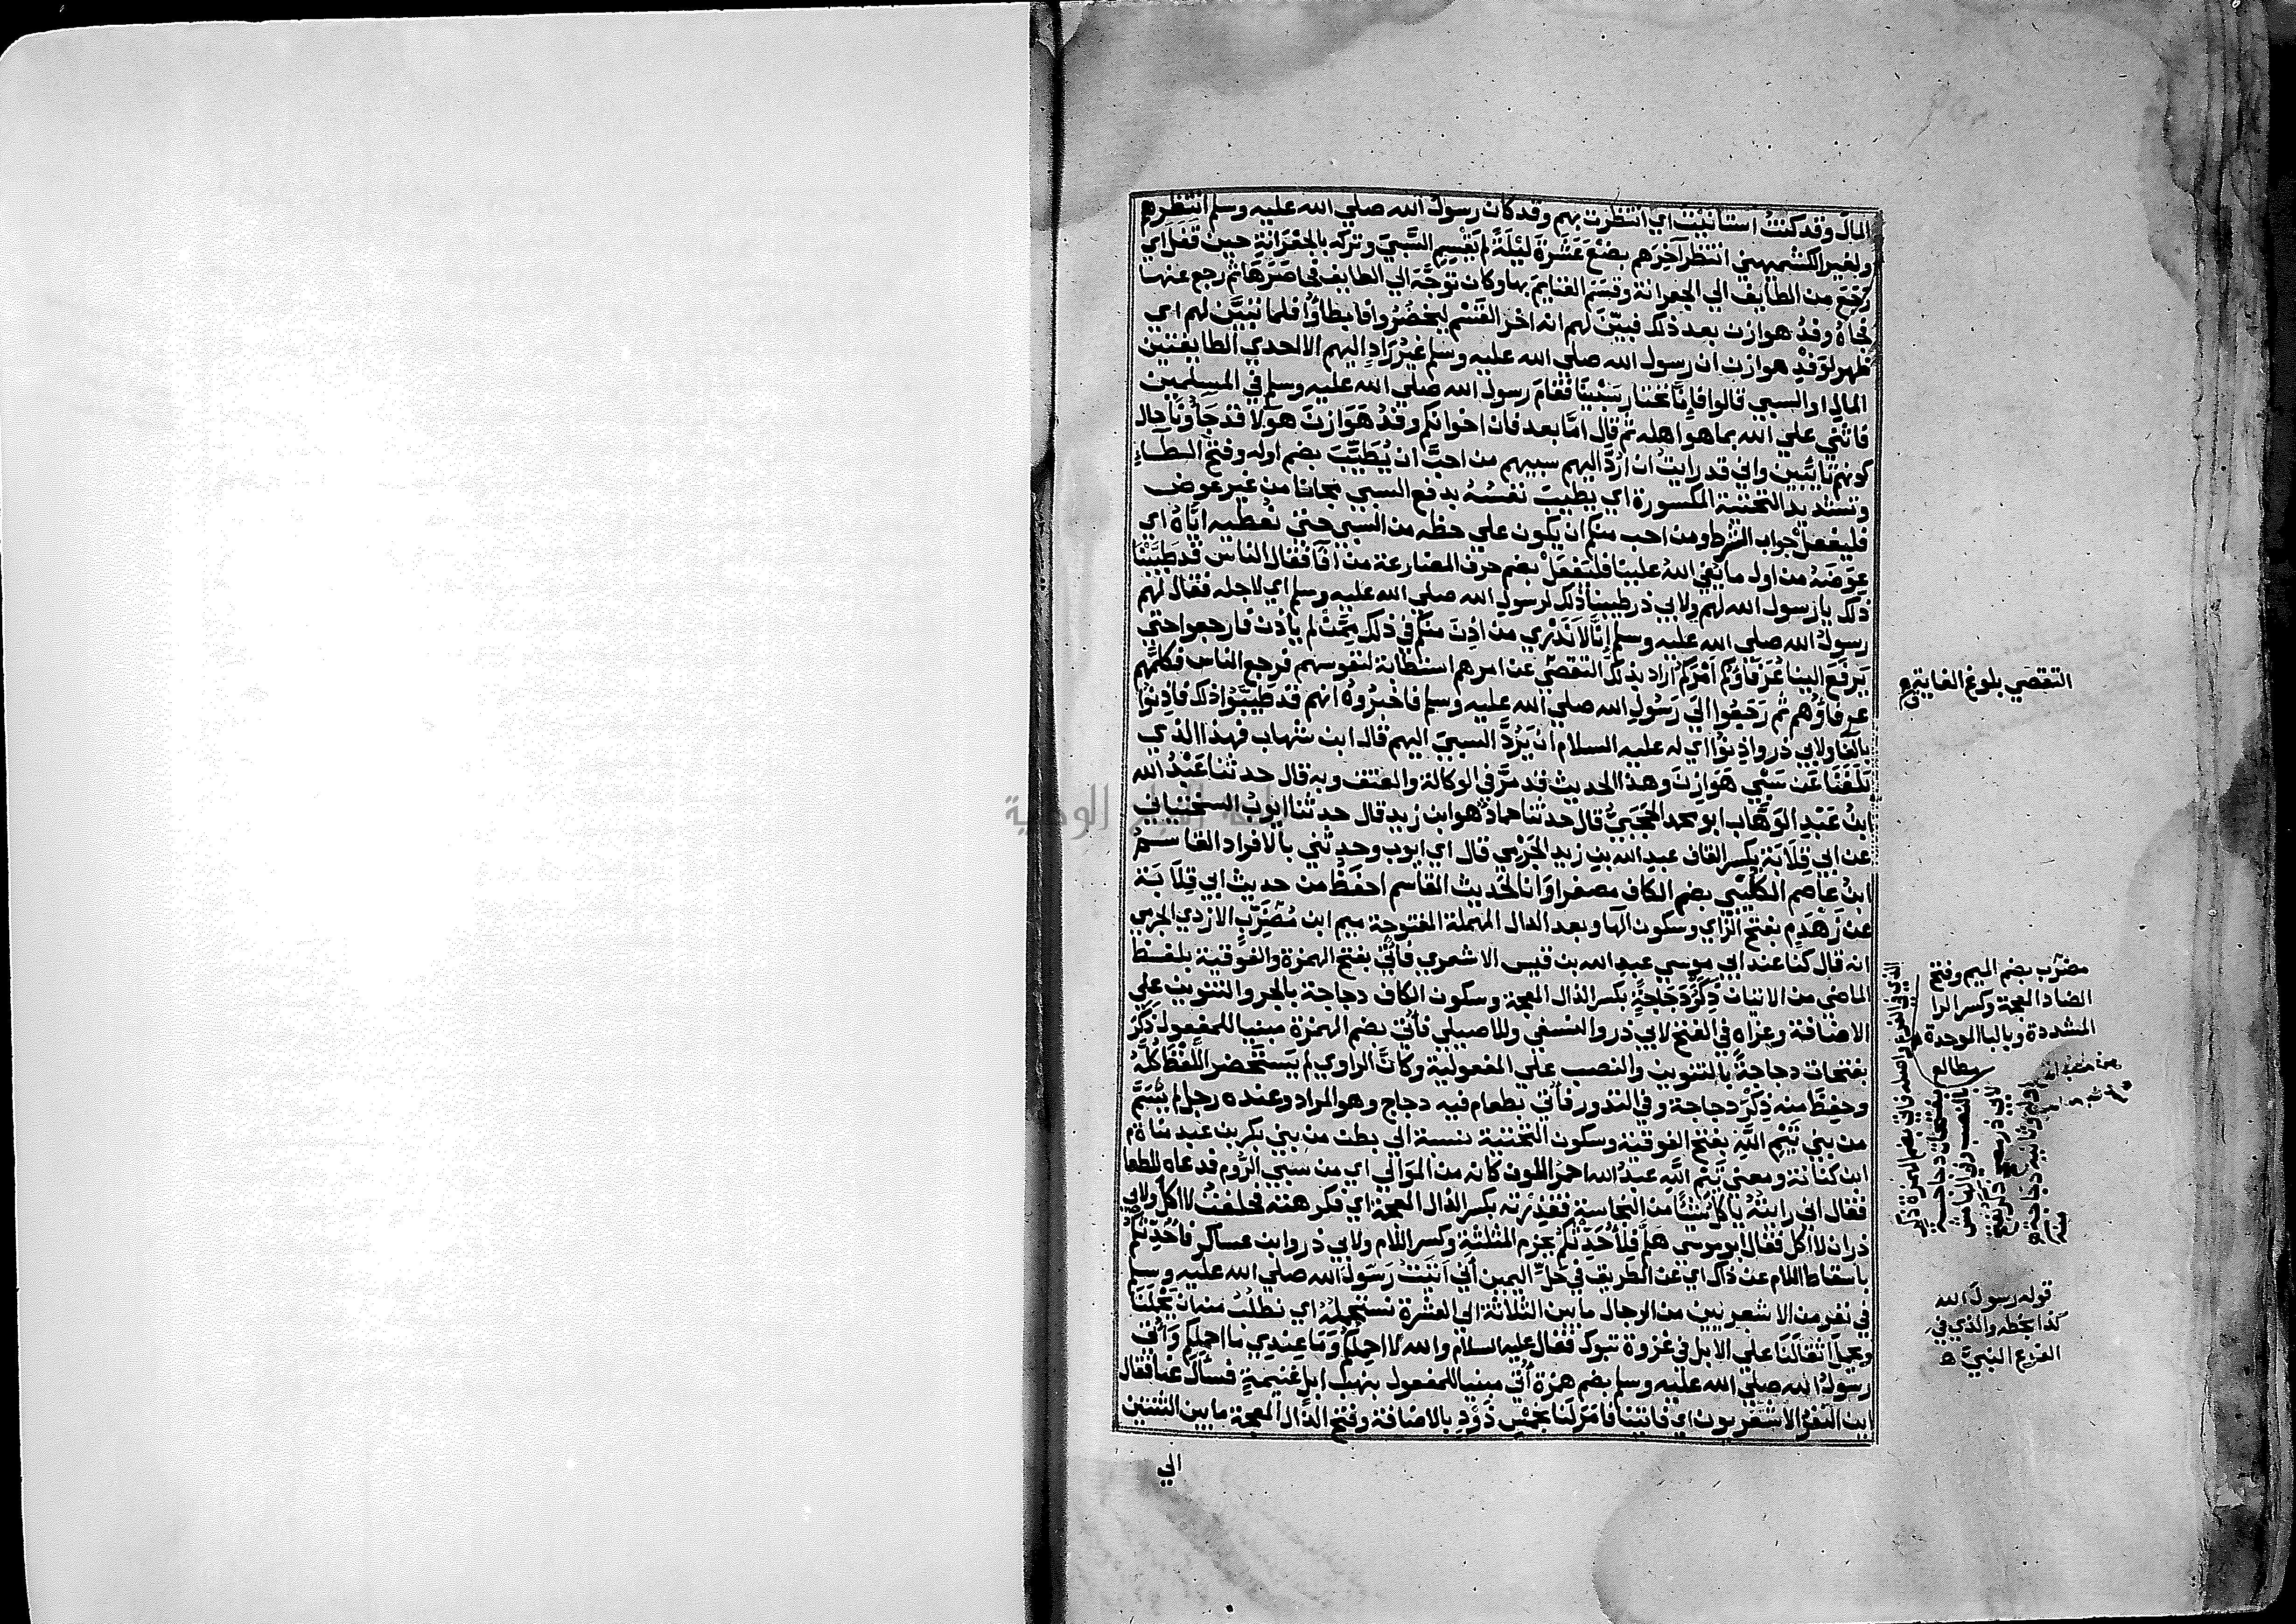 المال وقد كنت استأنيت اي انتظرت بهم وقد كان رسول الله صلي الله عليه وسلم انتظرهم
ولغير الكشميهني انتظر آخرهم بضع عشرة ليلة لم يقسم السبي وتركه بالجعرانة حين قفل اي
رجع من الطايف الي الجعرانة وقسم الغنايم بها وكان توجه الي الطايف فحاصرها ثم رجع عنها
فجاه وفد هوازن بعد ذلك فبين لهم انه اخر القسم ليحضروا فابطاؤا فلما تبين لهم اي
ظهر لوفد هوازن ان رسول الله صلي الله عليه وسلم غير راد اليهم الا احدي الطايفتين
المال او السبي قالوا فانا نختار سبينا فقام رسول الله صلي الله عليه وسلم في المسلمين
فاثني علي الله بما هو اهله ثم قال اما بعد فان اخوانكم وفد هوازن هولا قد جاؤنا حال
كونهم تايبين واني قد رايت ان ارد اليهم سبيهم من احب ان يطيب بضم اوله وفتح الطاء
وتشديد التحتية المكسورة اي يطيب نفسه بدفع السبي مجانا من غير عوض
فليفعل جواب الشرط ومن احب منكم ان يكون علي حظه من السبي حتي نعطيه اياه اي
عوضه من اول ما يفئ الله علينا فليفعل بضم حرف المضارعة من افا فقال الناس قد طيبنا
ذلك يا رسول الله لهم ولابي ذر طيبنا ذلك لرسول الله صلي الله عليه وسلم اي لاجله فقال لهم
رسول الله صلي الله عليه وسلم انا لا ندري من اذن منكم في ذلك ممن لم ياذن فارجعوا حتي
يرفع الينا عرفاؤكم امركم اراد بذلك التقصي عن امرهم استطابة لنفوسهم فرجع الناس فكلمهم
عرفاؤهم ثم رجعوا الي رسول الله صلي الله عليه وسلم فاخبروه انهم قد طيبوا ذلك فاذنوا
بالفا ولابي ذر واذنوا اي له عليه السلام ان يرد السبي اليهم قال ابن شهاب فهذا الذي
بلغنا عن سبي هوازن وهذا الحديث قد مر في الوكالة والعتق وبه قال حدثنا عبد الله
ابن عبد الوهاب ابو محمد الحجبي قال حدثنا حماد هو ابن زيد قال حدثنا ايوب السختياني
عن ابي قلابة بكسر القاف عبد الله بن زيد الجرمي قال اي ايوب وحدثني بالافراد القاسم
ابن عاصم الكليبي بضم الكاف مصغرا وانا لحديث القاسم احفظ من حديث ابي قلابة
عن زهدم بفتح الزاي وسكون الها وبعد الدال المهملة المفتوحة ميم ابن مضرب الازدي الجرمي
انه قال كنا عند ابي موسي عبد الله بن قيس الاشعري فاتي بفتح الهمزة والفوقية بلفظ
الماضي من الاتيان ذكر دجاجة بكسر الذال المعجمة وسكون الكاف دجاجة بالجر والتنوين علي
الاضافة وعزاه في الفتح لابي ذر والنسفي وللاصيلي فاتي بضم الهمزة مبنيا للمفعول ذكر
بفتحات دجاجة بالتنوين والنصب علي المفعولية وكان الراوي لم يستحضر اللفظ كله
وحفظ منه ذكر دجاجة وفي النذور فاتي بطعام فيه دجاج وهو المراد وعنده رجل لم يسم
من بني تيم الله بفتح الفوقية وسكون التحتية نسبة الي بطن من بني بكر بن عبد مناة م
ابن كنانة ومعني تيم الله عبد الله احمر اللون كانه من الموالي اي من سبي الروم فدعاه للطعام
فقال اني رايته ياكل شيئا من النجاسة فقذرته بكسر الذال المعجمة اي فكرهته فحلفت لا اكل ولابي
ذر ان لا اكل فقال ابو موسي هلم فلاحدثكم بجزم المثلثة وكسر اللام ولابي ذر وابن عساكر فاحدثكم
باسقاط اللام عن ذاك اي عن الطريق في حل اليمين اني اتيت رسول الله صلي الله عليه وسلم
في نفر من الاشعريين من الرجال ما بين الثلاثة الي العشرة نستحمله اي نطلب منه ان يحملنا
ويحمل اثقالنا علي الابل في غزوة تبوك فقال عليه السلام والله لا احملكم وما عندي ما احملكم واتي
رسول الله صلي الله عليه وسلم بضم همزة اتي مبنيا للمفعول بنهب ابل غنيمة فسال عنا فقال
اين النفر الاشعريون اي فاتينا فامر لنا بخمس ذود بالاضافة وفتح الذال المعجمة ما بين الثنتين
الي
التقصي بلوغ الغاية
مضرب بضم الميم وفتح
الضاد المعجمة وكسر الرا
المشددة وبالبا الموحدة
الذي في الفرع واصله فاتي بضم الهمزة ذكر
بفتحات دجاجة
بالنصب وفي الهامش
لابي ذر
قوله رسول الله
كذا بخطه والذي في
الفرع النبي ه